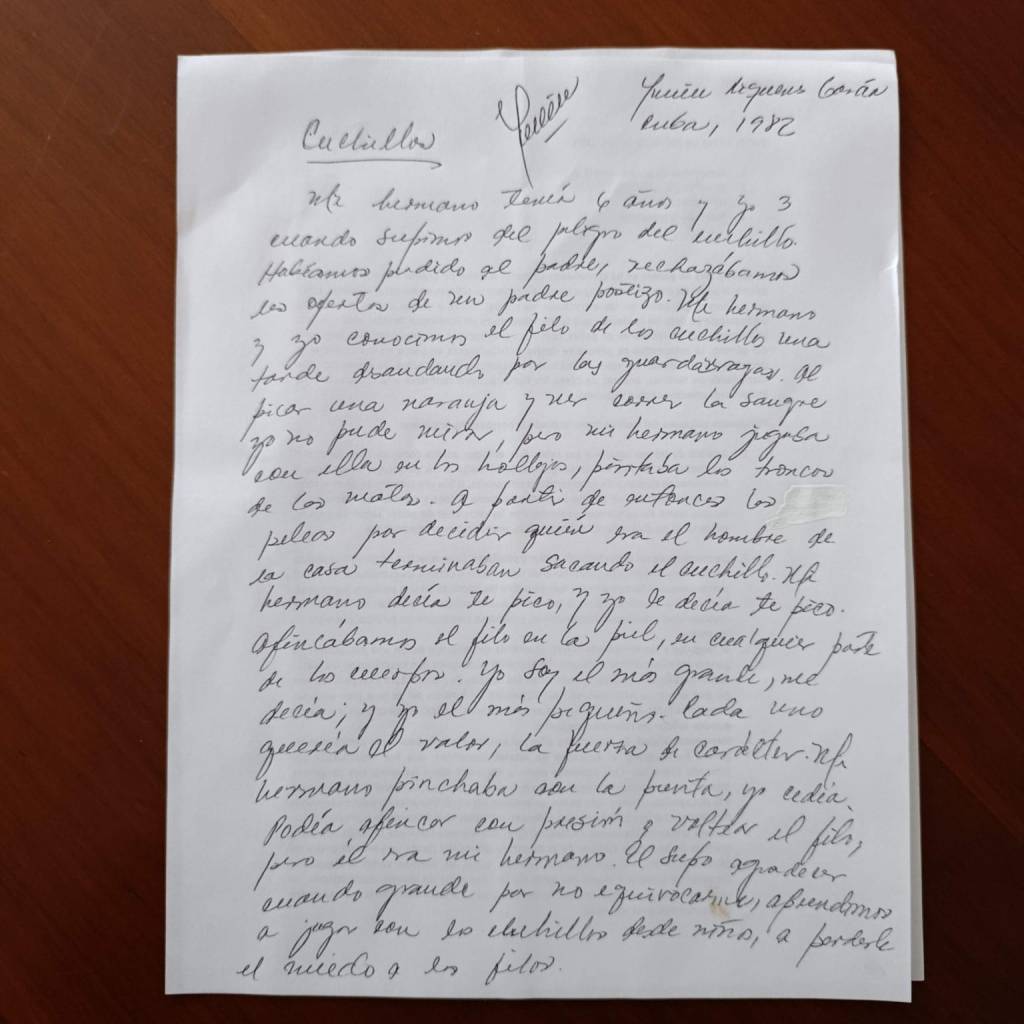 Yunier Riquenes García
Cuba, 1982
Cuchillos
Mi hermano tenía 6 años y yo 3
cuando supimos del peligro del cuchillo.
Habíamos perdido al padre, rechazábamos
las ofertas de un padre postizo. Mi hermano
y yo conocimos el filo de los cuchillos una
tarde desandando por las guardarrayas. Al
picar una naranja y ver correr la sangre
yo no pude mirar, pero mi hermano jugaba
con ella en los hollejos, pintaba los troncos
de las matas. A partir de entonces las
peleas por decidir quién era el hombre de
la casa terminaban sacando el cuchillo. Mi
hermano decía te pico, y yo le decía te pico.
Afincábamos el filo en la piel, en cualquier parte
de los cuerpos. Yo soy el más grande, me
decía; y yo el más pequeño. Cada uno
quería el valor, la fuerza de carácter. Mi
hermano pinchaba con la punta, yo cedía.
Podía afincar con presión y voltear el filo,
pero él era mi hermano. Él supo agradecer
cuando grande por no equivocarme, aprendimos
a jugar con los cuchillos desde niños, a perderle
el miedo a los filos.